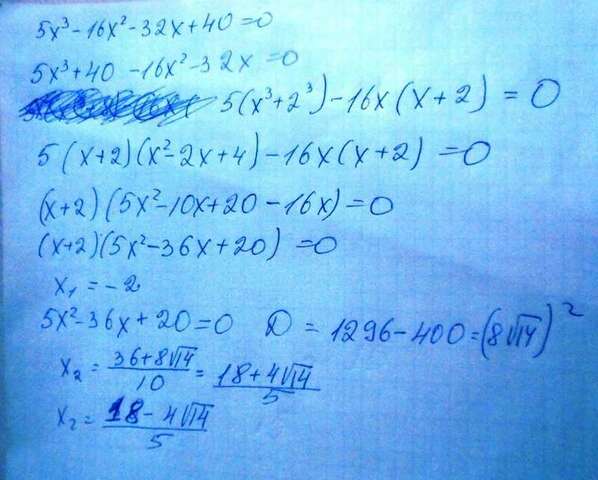 5x³-16x²-32x+40=0
5x³+40 -16x²-32x=0
5(x³+2³)-16x(x+2)=0
5(x+2)(x²-2x+4)-16x(x+2)=0
(x+2)(5x²-10x+20-16x)=0
(x+2)(5x²-36x+20)=0
x₁=-2
5x²-36x+20=0 D=1296-400=(8√14)²
x₂=\frac{36+8√14}{10}=\frac{18+4√14}{5}
x₂=\frac{18-4√14}{5}